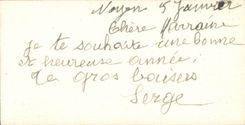 Noyon 5 Janvier
Chère Marraine
je te souhaite une bonne
et heureuse année,
De gros baisers
Serge